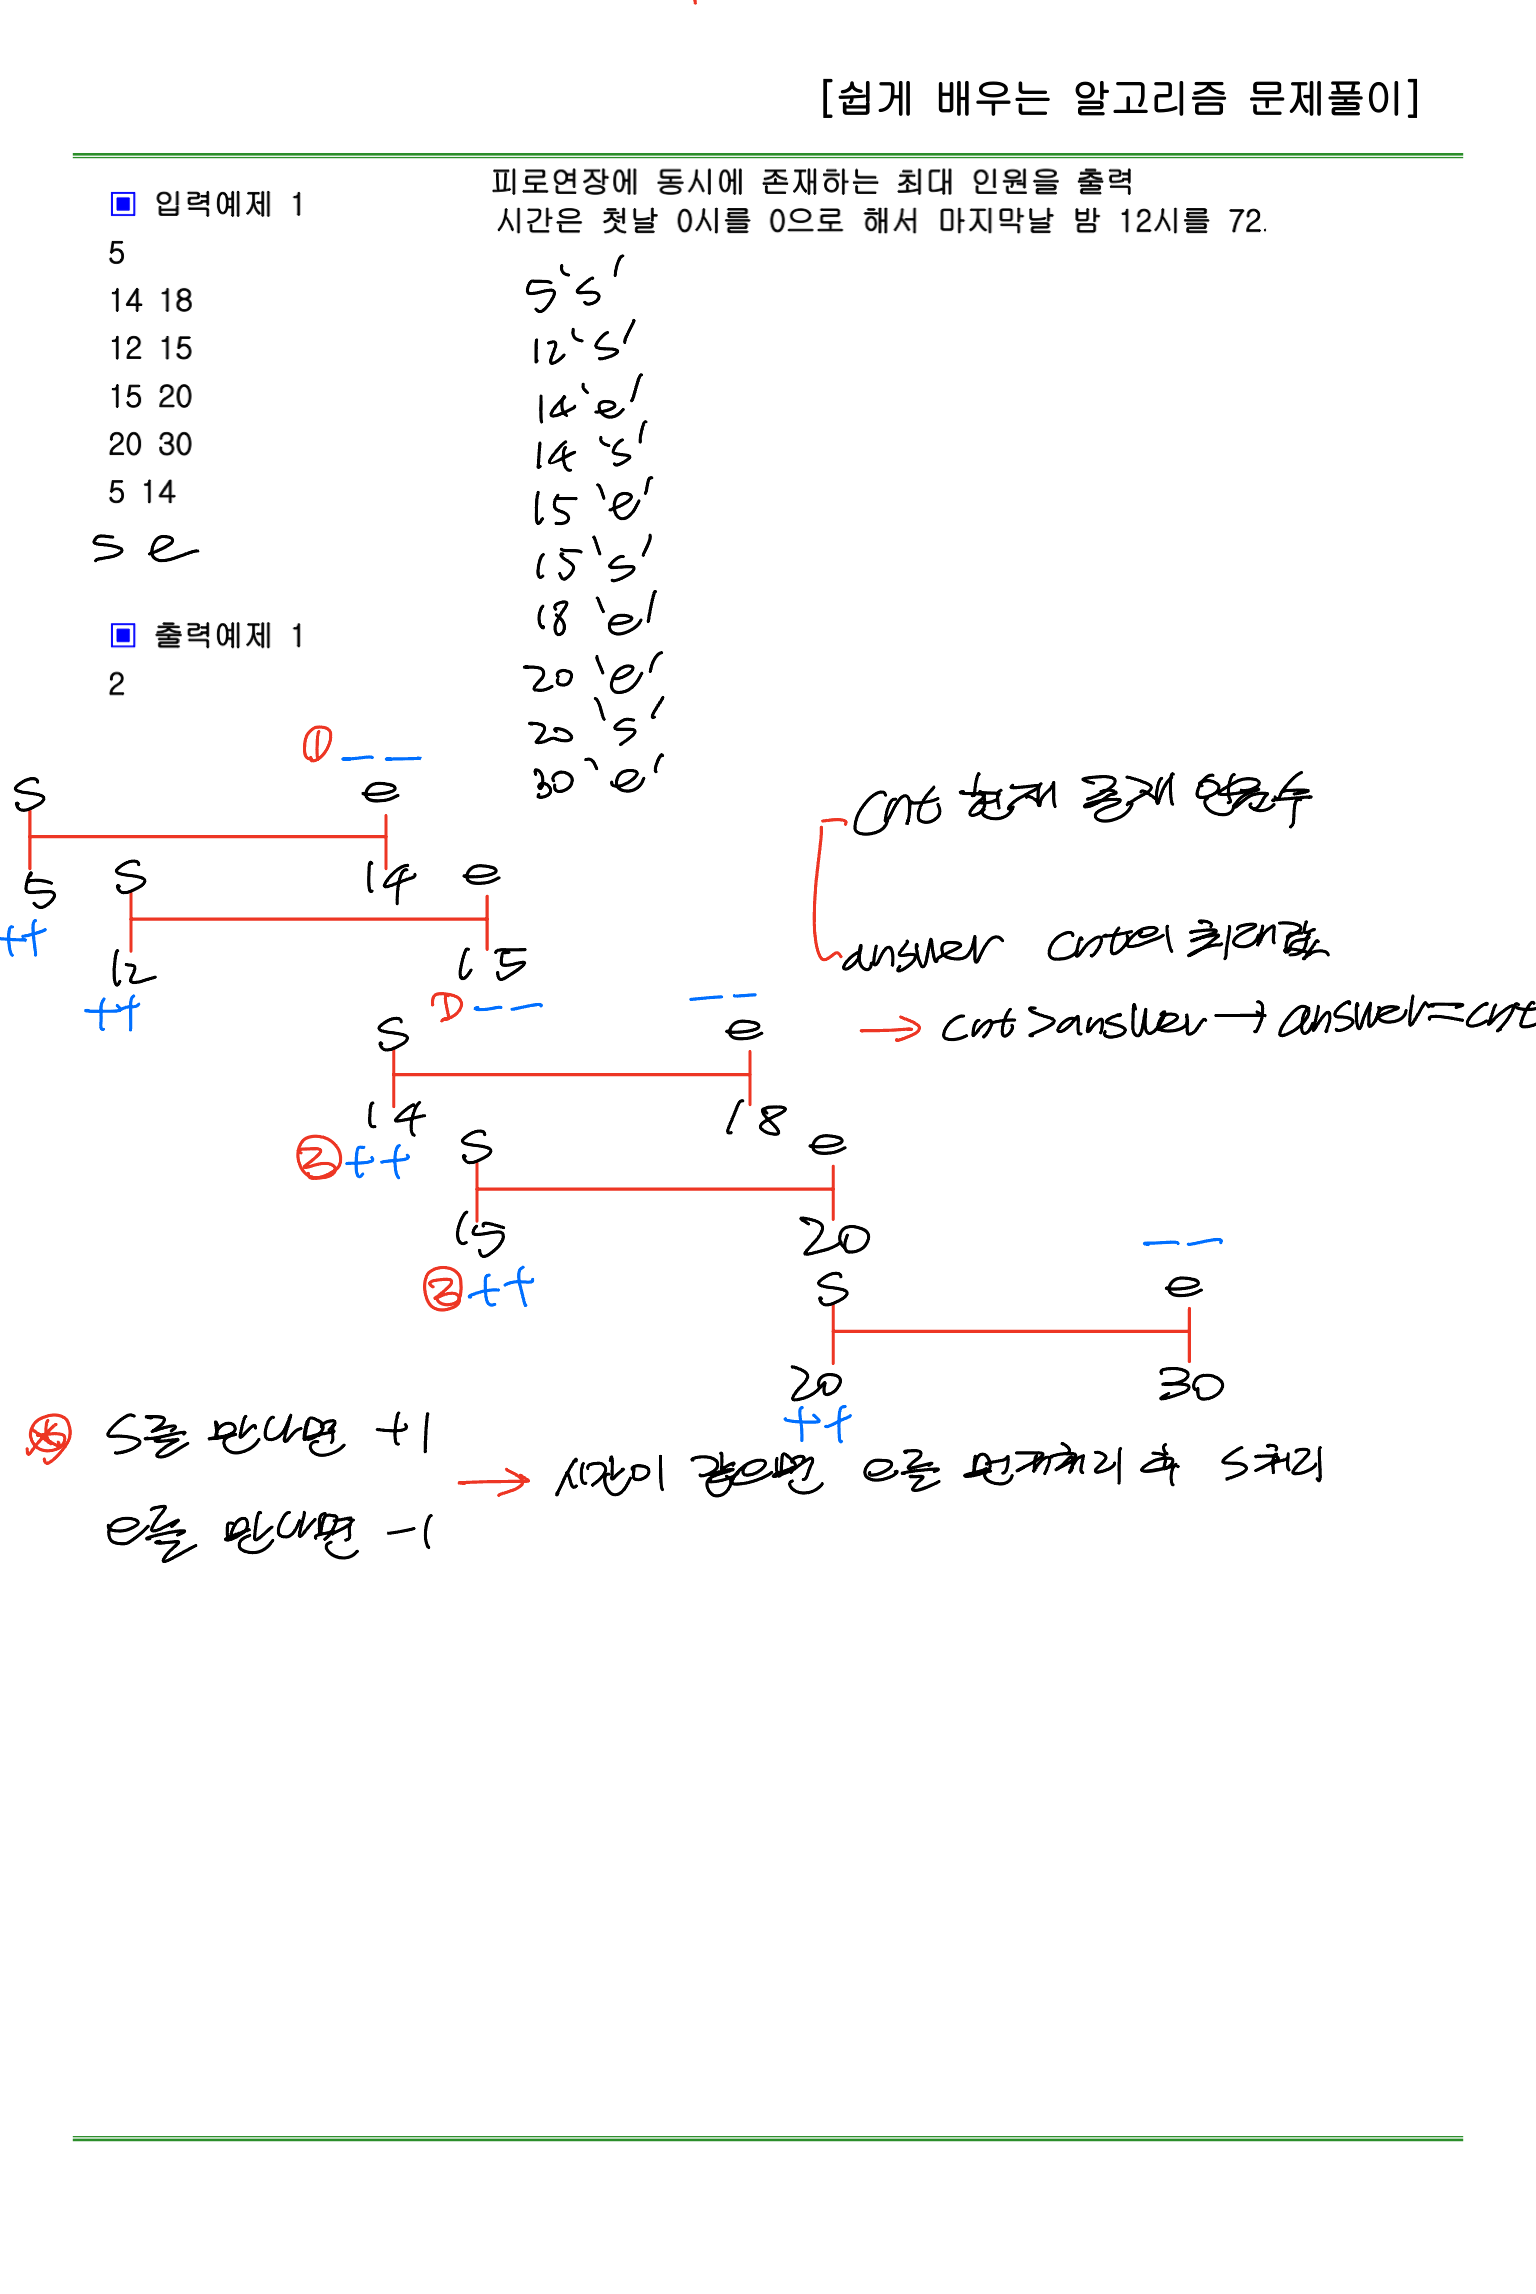 [쉽게 배우는 알고리즘 문제풀이]
▣ 입력예제 1
5
14 18
12 15
15 20
20 30
5 14
s e
▣ 출력예제 1
2
피로연장에 동시에 존재하는 최대 인원을 출력
시간은 첫날 0시를 0으로 해서 마지막날 밤 12시를 72.
5 's'
12 's'
14 'e'
14 's'
15 'e'
15 's'
18 'e'
20 'e'
20 's'
30 'e'
① --
s e
5 14
++
s e
12 15
++ ① --
s e
14 18
② ++ --
s e
15 20
② ++
s e
20 30
++ --
cnt 현재 존재 인원수
answer cnt의 최대값
→ cnt > answer → answer = cnt
s를 만나면 +1
e를 만나면 -1
→ 시간이 같으면 e를 먼저처리 후 s처리